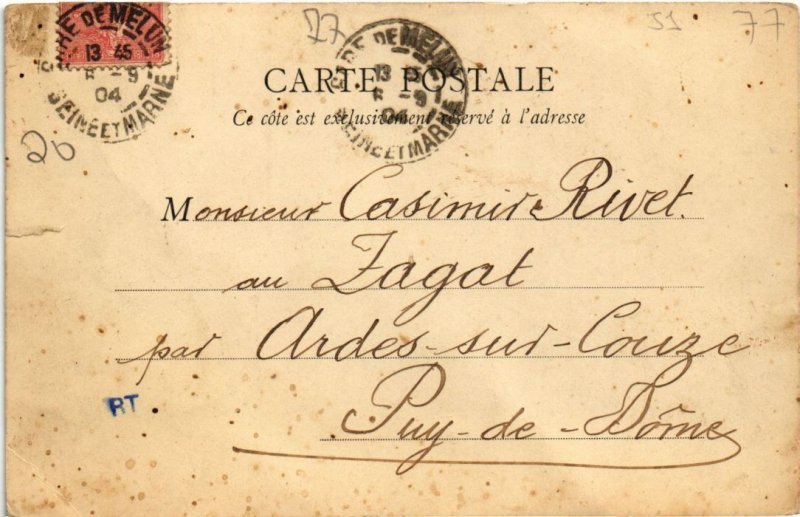 27 51 77
GARE DE MELUN
13 45
8 - 9
04
SEINE ET MARNE
GARE DE MELUN
13
8 - 9
04
SEINE ET MARNE
CARTE POSTALE
Ce côté est exclusivement réservé à l'adresse
20
Monsieur Casimir Rivet.
au Zagat
par Ardes-sur-Couze
RT
Puy-de-Dôme